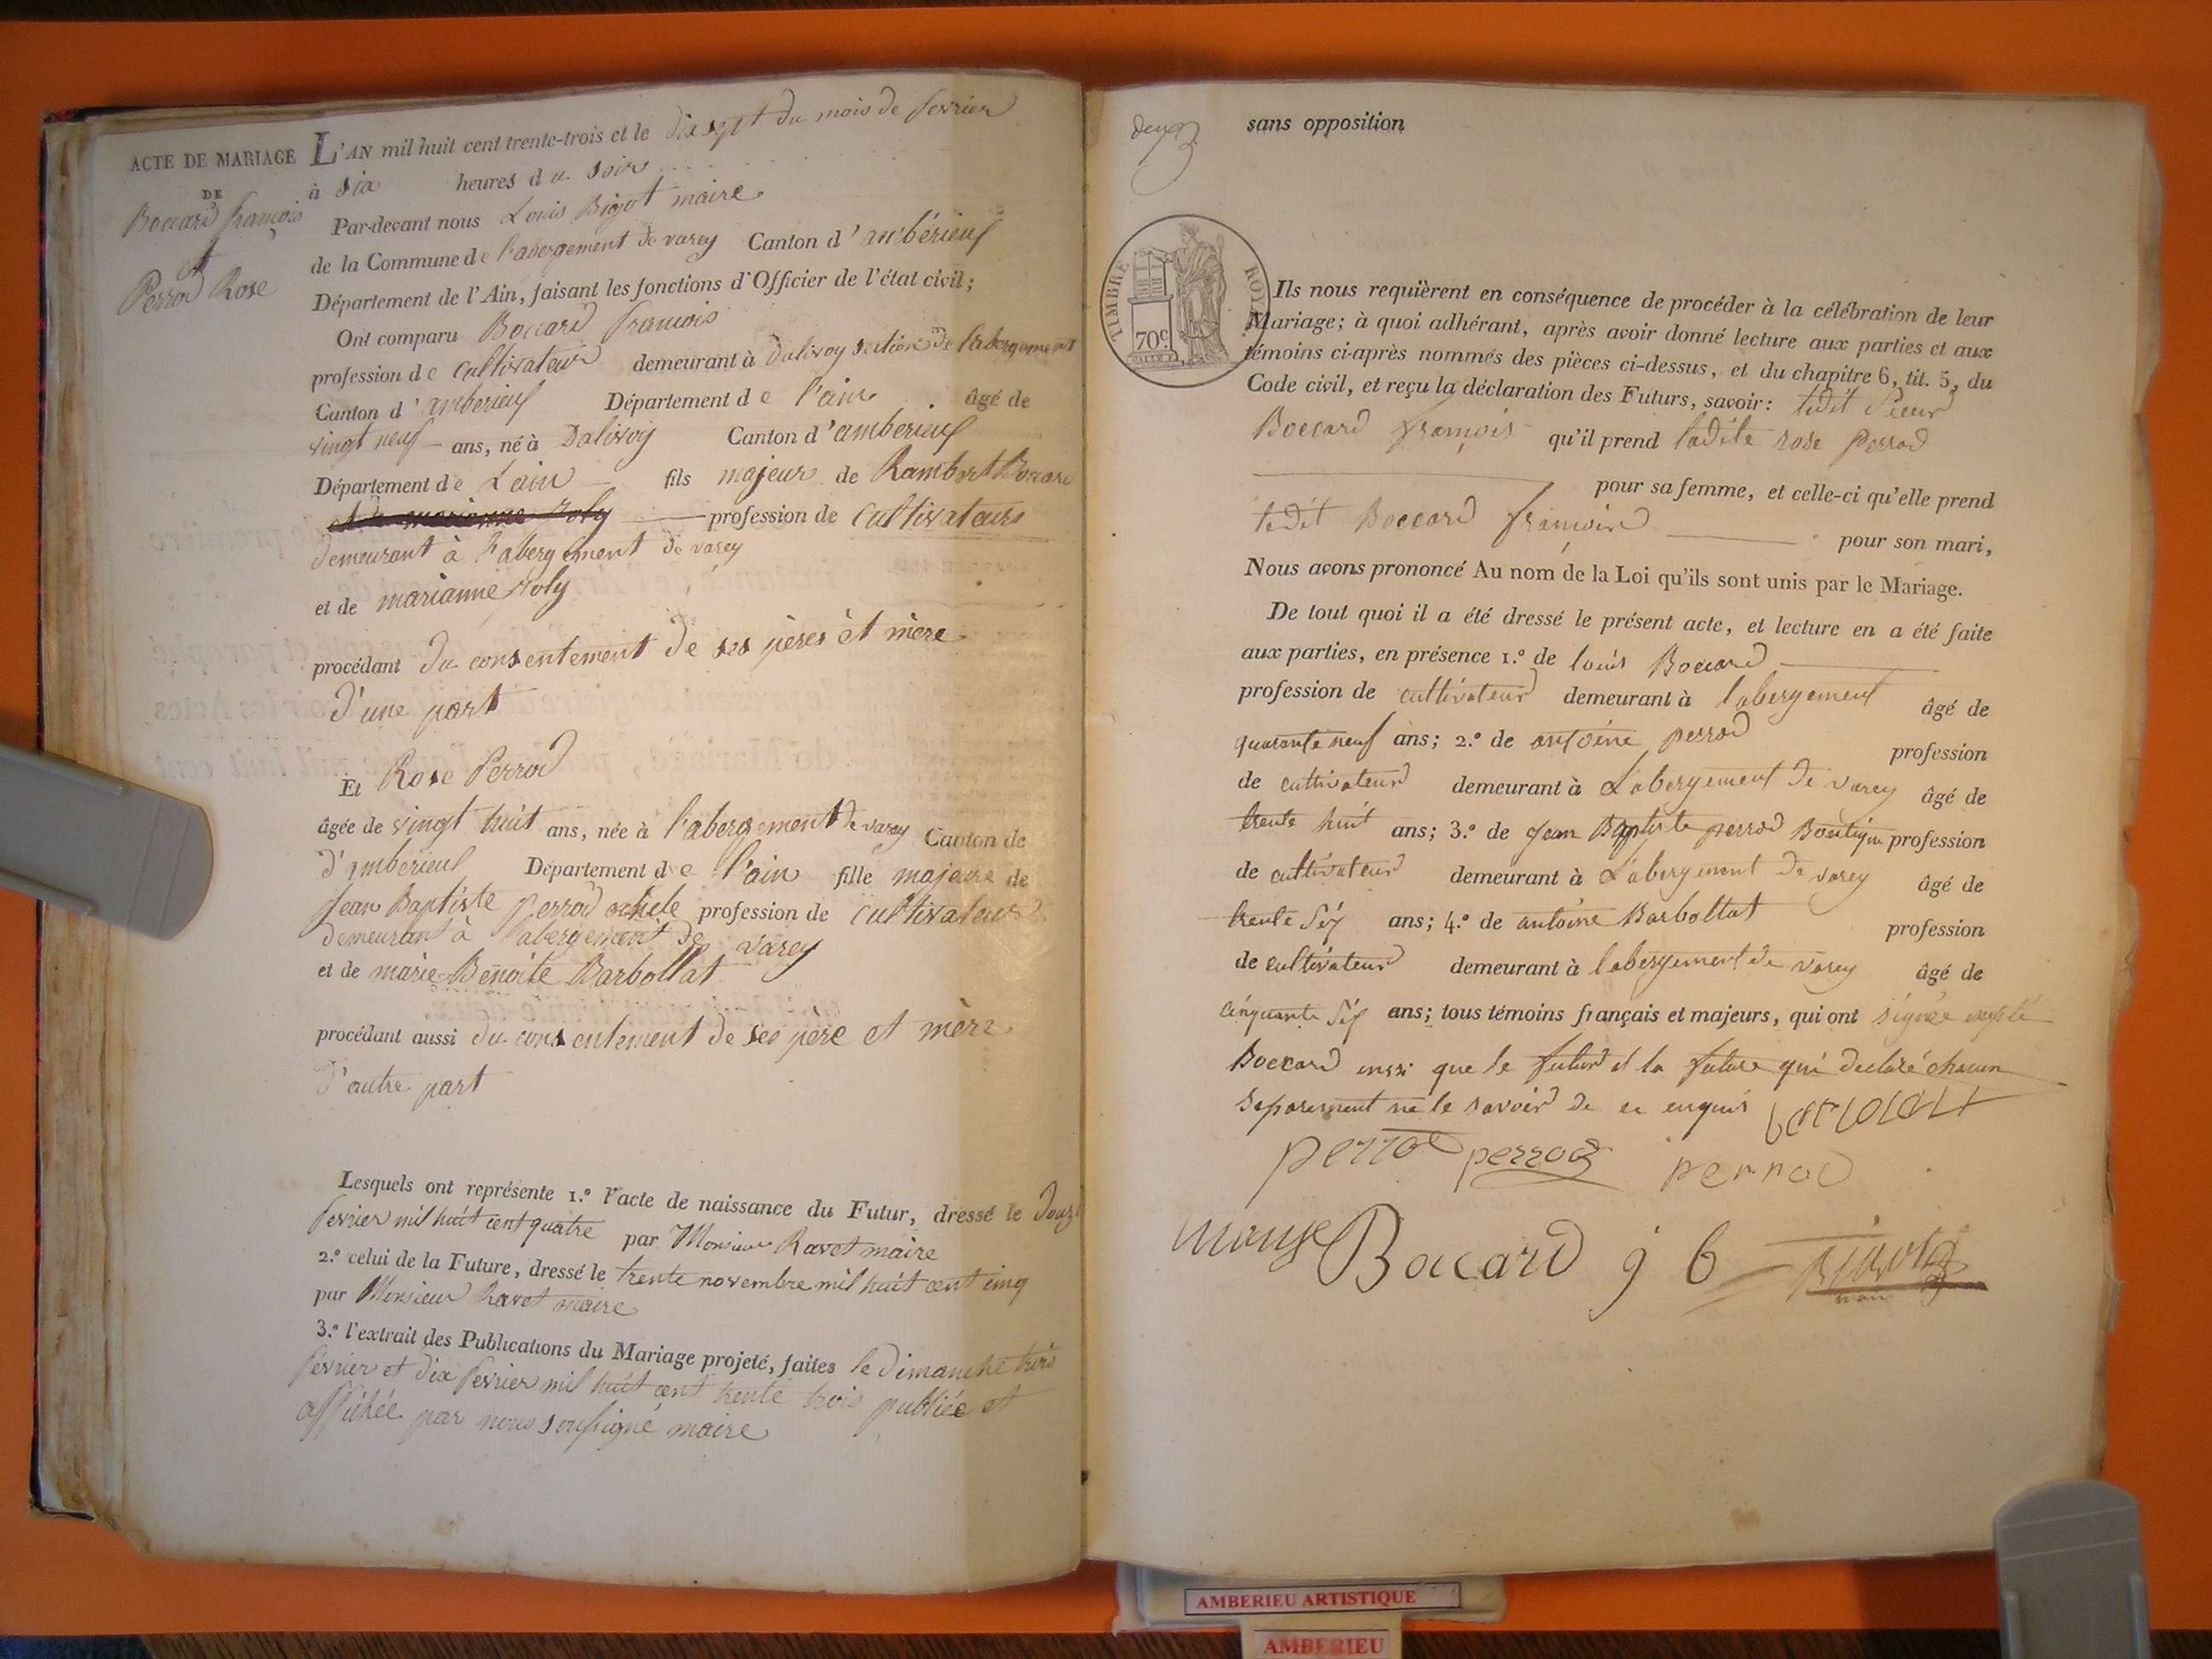 ACTE DE MARIAGE
DE
Boccard françois
et
Perrod Rose
L'AN mil huit cent trente-trois et le dix sept du mois de fevrier
à six heures du soir
Par-devant nous Louis Bigot maire
de la Commune de l'abergement de varey Canton d'ambérieuf
Département de l'Ain, faisant les fonctions d'Officier de l'état civil;
Ont comparu Boccard francois
profession de cultivateur demeurant à Dalivoy section de l'abergement
Canton d'amberieuf Département de l'ain âgé de
vingt neuf ans, né à Dalivoy Canton d'amberieuf
Département de L'ain fils majeur de Rambert Boccard
et de marianne Joly profession de cultivateurs
demeurant à l'abergement de varey
et de marianne Joly
procédant du consentement de ses pères et mère
d'une part
Et Rose Perrod
âgée de vingt huit ans, née à l'abergement de varey Canton de
d'amberieuf Département de l'ain fille majeure de
Jean Baptiste perrod profession de cultivateur
demeurant à l'abergement de varey
et de marie Benoite Barbollat
procédant aussi du consentement de ses père et mère
d'autre part
Lesquels ont représente 1.º l'acte de naissance du Futur, dressé le douze
fevrier mil huit cent quatre par Monsieur Ravet maire
2.º celui de la Future, dressé le trente novembre mil huit cent cinq
par Monsieur Ravet maire
3.º l'extrait des Publications du Mariage projeté, faites le dimanche trois
fevrier et dix fevrier mil huit cent trente trois publiée et
affichée par nous soussigné maire
deux
sans opposition
TIMBRE ROYAL
70c.
Ils nous requièrent en conséquence de procéder à la célébration de leur
Mariage; à quoi adhérant, après avoir donné lecture aux parties et aux
témoins ci-après nommés des pièces ci-dessus, et du chapitre 6, tit. 5, du
Code civil, et reçu la déclaration des Futurs, savoir: ledit Sieur
Boccard françois qu'il prend ladite rose perrod
pour sa femme, et celle-ci qu'elle prend
ledit Boccard francois
pour son mari,
Nous avons prononcé Au nom de la Loi qu'ils sont unis par le Mariage.
De tout quoi il a été dressé le présent acte, et lecture en a été faite
aux parties, en présence 1.º de louis Boccard
profession de cultivateur demeurant à l'abergement âgé de
quarante neuf ans; 2.º de antoine perrod profession
de cultivateur demeurant à L'abergement de varey âgé de
trente huit ans; 3.º de Jean Baptiste perrod profession
de cultivateur demeurant à L'abergement de varey âgé de
trente six ans; 4.º de antoine Barbollat profession
de cultivateur demeurant à l'abergement de varey âgé de
cinquante six ans; tous témoins français et majeurs, qui ont signée
Boccard que le futur et la future qui declaré chacun
separement ne le savoir de ce enquis
perrod perrod perrod
Boccard
AMBERIEU ARTISTIQUE
AMBERIEU